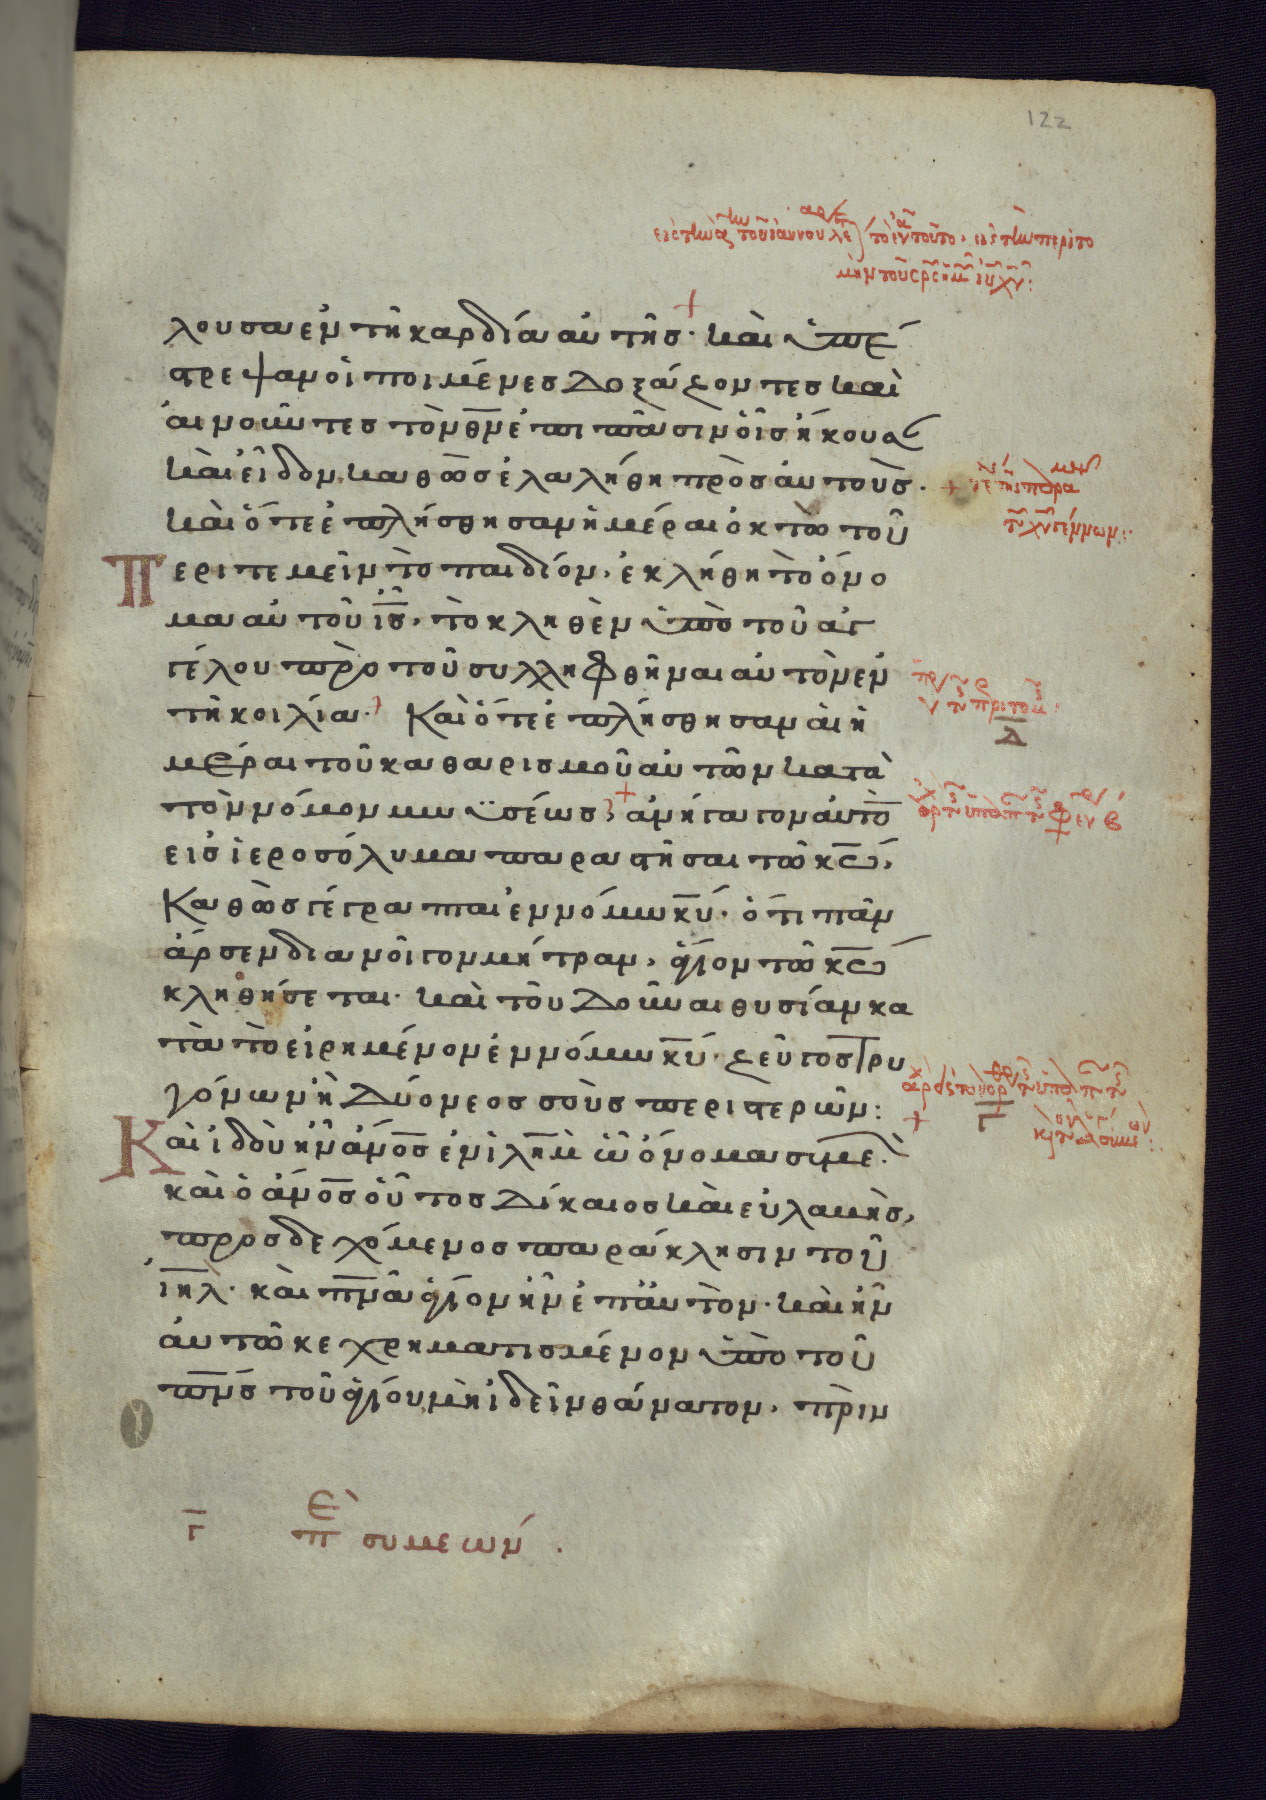 122
λουσα ἐν τῆ καρδία αὐτῆσ· καὶ ὑπέ
στρεψαν οἱ ποιμένεσ δοξάζοντεσ καὶ
αἰνοῦντεσ τὸν θν ἐπι πᾶσιν οἷσ ἤκουσ
καὶ εἶδον, καθὼσ ἐλαλήθη πρὸσ αὐτούσ.
καὶ ὅτε ἐπλήσθησαν ἡμέραι ὀκτὼ τοῦ
Περιτεμεῖν τὸ παιδίον, ἐκλήθη τὸ ὄνο
μα αὐτοῦ ισ, τὸ κληθὲν ὑπὸ τοῦ ἀγ
γέλου πρὸ τοῦ συλληφθῆναι αὐτὸν ἐν
τῆ κοιλία· Καὶ ὅτε ἐπλήσθησαν αἱ ἡ
μέραι τοῦ καθαρισμοῦ αὐτῶν κατὰ
τὸν νόμον μωϋσέωσ, ἀνήγαγον αὐτὸ
εἰσ ἱεροσόλυμα παραστῆσαι τῶ κω,
Καθὼσ γέγραπται ἐν νόμω κυ. ὅτι πᾶν
ἄρσεν διανοῖγον μήτραν, ἅγιον τῶ κω
κληθήσεται. καὶ τοῦ δοῦναι θυσίαν κα
τὰ τὸ εἰρημένον ἐν νόμω κυ. ζεῦγοσ τρυ
γόνων ἢ δύο νεοσσοὺσ περιστερῶν:
Καὶ ἰδοὺ ἦν ἄνοσ ἐν ιλημ ὧ ὄνομα συμε.
καὶ ὁ ἄνοσ οὗτοσ δίκαιοσ καὶ εὐλαβὴσ,
προσδεχόμενοσ παράκλησιν τοῦ
ιηλ. καὶ πνα ἅγιον ἦν ἐπ αὐτὸν. καὶ ἦν
αὐτῶ κεχρηματισμένον ὑπὸ τοῦ
πνσ τοῦ ἁγίου μὴ ἰδεῖν θάνατον, πρὶν
Δ
Γ
Γ Πε συμεών.